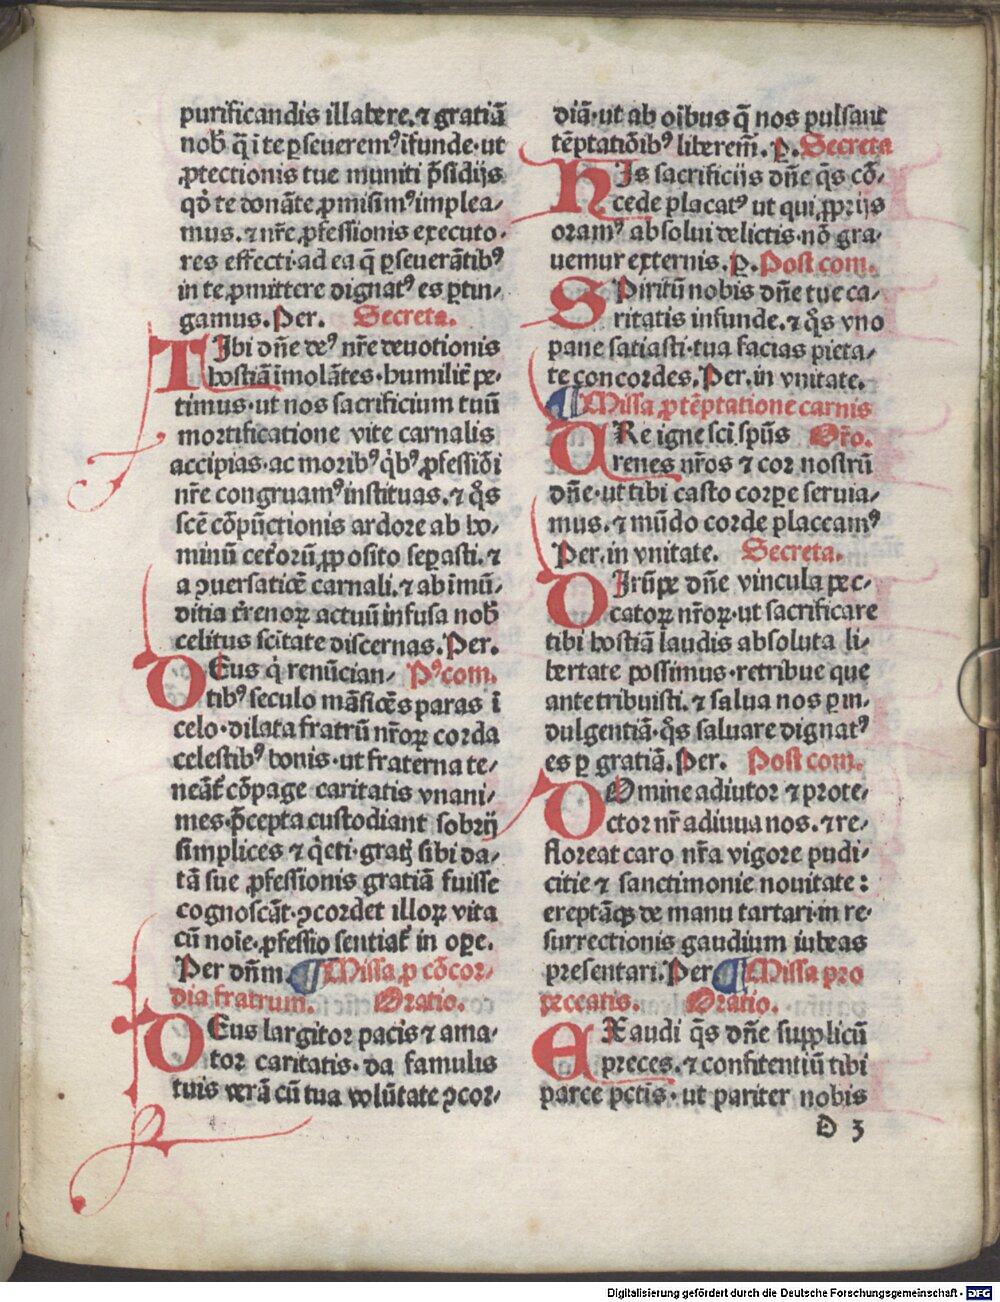 purificandis illabere. ⁊ gratiā
nob̄ q̄ i te ꝑseuerem⁹ īfunde· ut
ꝓtectionis tue muniti p̄sidijs
qḋ te donāte ꝓmisim⁹ implea⸗
mus. ⁊ nr̄e ꝓfessionis executo⸗
res effecti· ad ea q̄ ꝑseuerātib⁹
in te ꝓmittere dignat⁹ es ꝑtin⸗
gamus. Per. Secreta.
TIbi dn̄e de⁹ nr̄e deuotionis
hostiā īmolātes· humilit̄ pe⸗
timus· ut nos sacrificium tuū
mortificatione vite carnalis
accipias· ac morib⁹ qͥb⁹ ꝓfessiōi
nr̄e congruam⁹ instituas. ⁊ q̄s
scē cōpūctionis ardore ab ho⸗
minū cet̄orū ꝓposito seꝑasti. ⁊
a ꝯuersatiōe carnali. ⁊ ab īmū⸗
ditia t̄renoꝝ actuū infusa nob̄
celitus scītate discernas. Per.
DEus qͥ renūcian⸗ P⁹com.
tib⁹ seculo māsiōes paras ī
celo· dilata fratrū nr̄oꝝ corda
celestib⁹ bonis· ut fraterna te⸗
neāt̄ cōpage caritatis vnani⸗
mes· p̄cepta custodiant sobrij
simplices ⁊ qͥeti· gratꝭ sibi da⸗
tā sue ꝓfessionis gratiā fuisse
cognoscāt· ꝯcordet illoꝝ vita
cū noīe· ꝓfessio sentiat̄ in oꝑe.
Per dn̄m ¶ Missa ꝓ cōcor⸗
dia fratrum. Oratio.
DEus largitor pacis ⁊ ama⸗
tor caritatis· da famulis
tuis verā cū tua volūtate ꝯcor⸗
diā· ut ab oībus q̄ nos pulsant
tēptatiōib⁹ liberem̄. ꝑ. Secreta
HIs sacrificijs dn̄e q̄s cō⸗
cede placat⁹ ut qui ꝓprijs
oram⁹ absolui delictis· nō gra⸗
uemur externis. ꝑ. Post com.
SPiritū nobis dn̄e tue ca⸗
ritatis infunde. ⁊ q̄s vno
pane satiasti· tua facias pieta⸗
te concordes. Per. in vnitate.
¶ Missa ꝓ tēptatione carnis
URe igne sci spūs Or̄o.
renes nr̄os ⁊ cor nostrū
dn̄e· ut tibi casto corꝑe seruia⸗
mus. ⁊ mūdo corde placeam⁹
Per. in vnitate. Secreta.
DIrūpe dn̄e vincula pec⸗
catoꝝ nr̄oꝝ· ut sacrificare
tibi hostiā laudis absoluta li⸗
bertate possimus· retribue que
ante tribuisti. ⁊ salua nos ꝑ in⸗
dulgentiā· q̄s saluare dignat⁹
es ꝑ gratiā. Per. Post com.
DOmine adiutor ⁊ prote⸗
ctor nr̄ adiuua nos. ⁊ re⸗
floreat caro nr̄a vigore pudi⸗
citie ⁊ sanctimonie nouitate:
ereptāqꝫ de manu tartari· in re⸗
surrectionis gaudium iubeas
presentari. Per ¶ Missa pro
peccatis. Oratio.
EXaudi q̄s dn̄e supplicū
preces. ⁊ confitentiū tibi
parce pctīs· ut pariter nobis
D 3
Digitalisierung gefördert durch die Deutsche Forschungsgemeinschaft - DFG